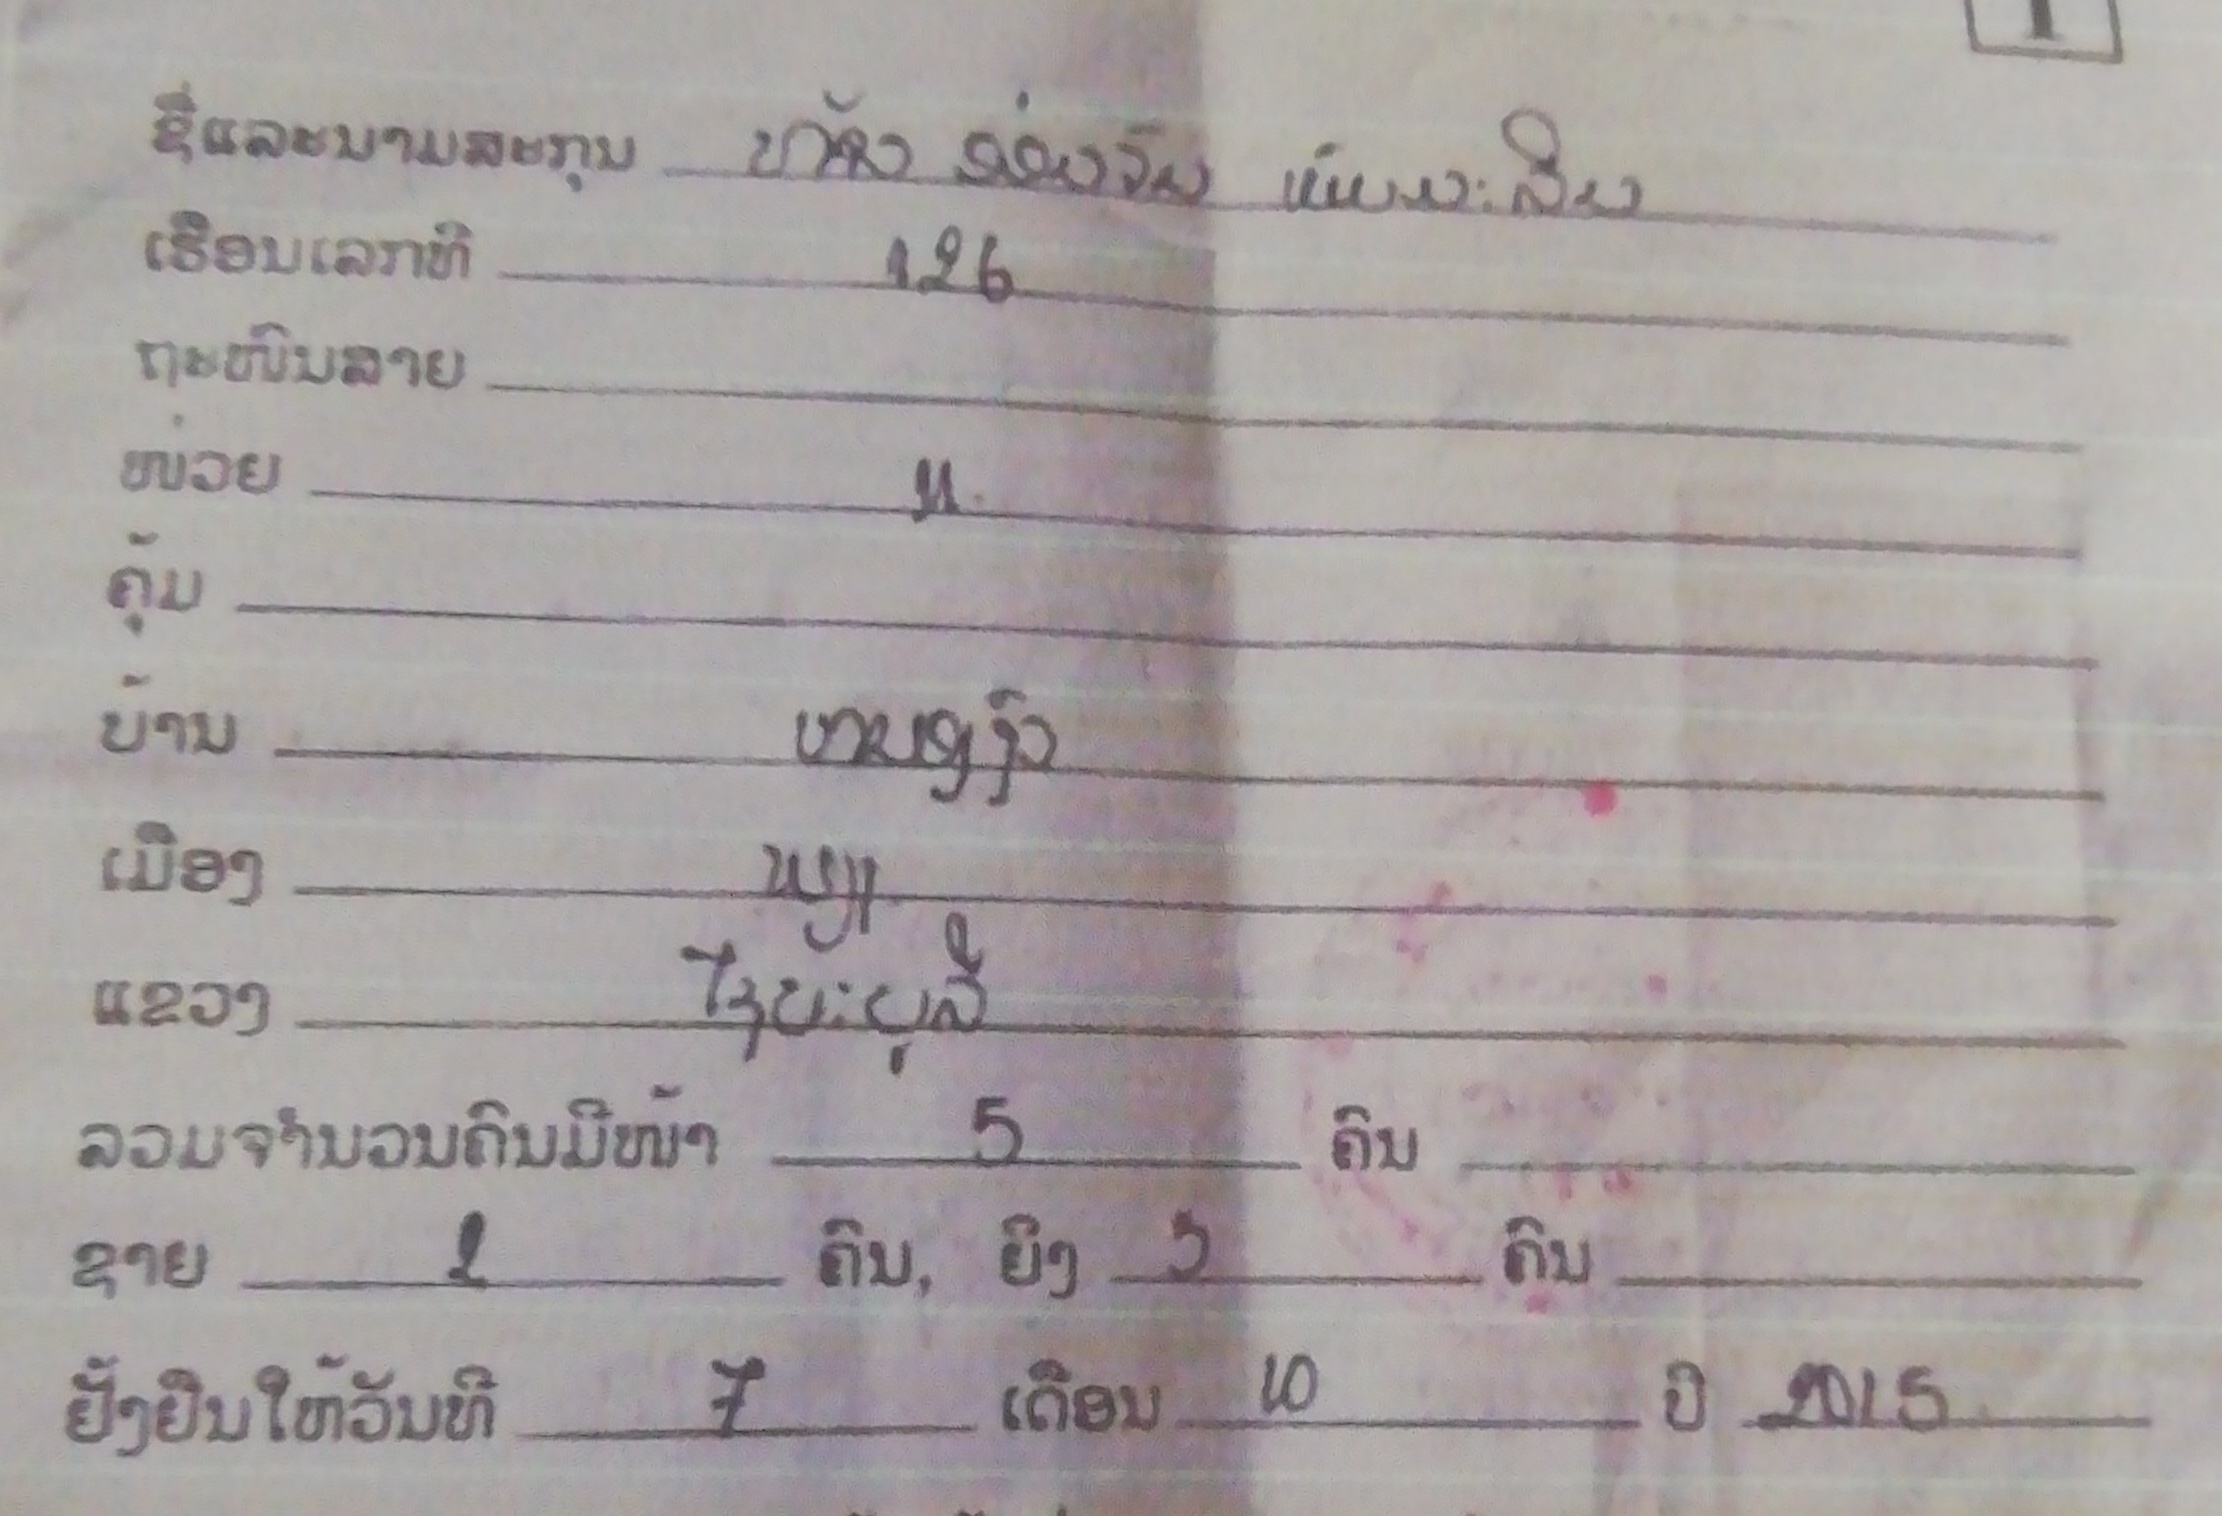 1
ຊື່ແລະນາມສະກຸນ ທ້າວ
ເຮືອນເລກທີ 126
ຖະໜົນສາຍ
ໜ່ວຍ 11.
ຄຸ້ມ
ບ້ານ
ເມືອງ ພຽງ
ແຂວງ ໄຊຍະບູລີ
ລວມຈຳນວນຄົນມີໜ້າ 5 ຄົນ
ຊາຍ 2 ຄົນ, ຍິງ 3 ຄົນ
ຢັ້ງຢືນໃຫ້ວັນທີ 7 ເດືອນ 10 ປີ 2015